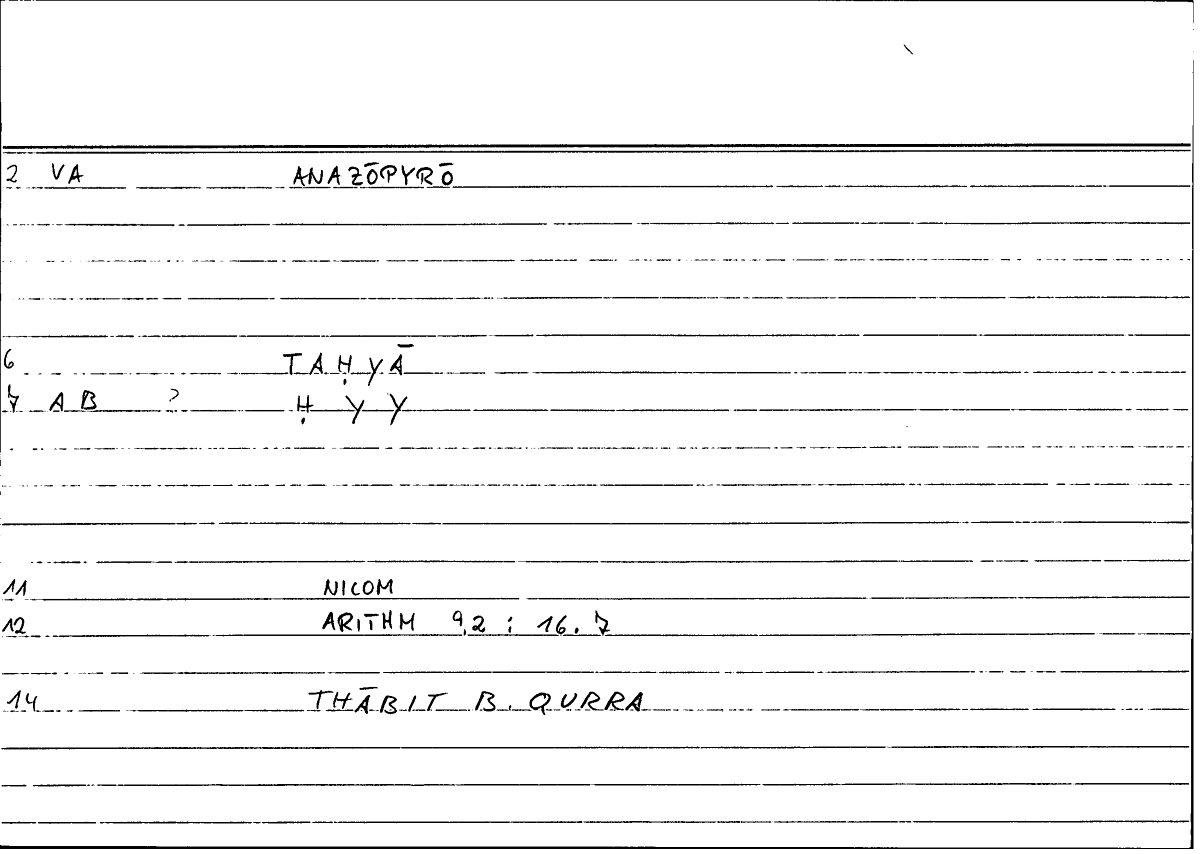 2 VA ANAZŌPYRŌ
6 TAḤYĀ
7 AB ? Ḥ Y Y
11 NICOM
12 ARITHM 9,2 : 16.7
14 THĀBIT B. QURRA